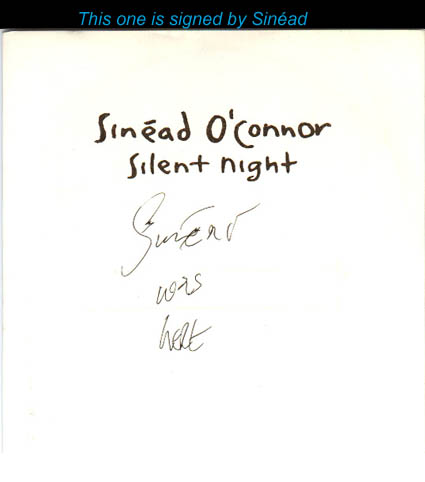 This one is signed by Sinéad
Sinéad O'Connor
Silent night
Sinéad
was
here